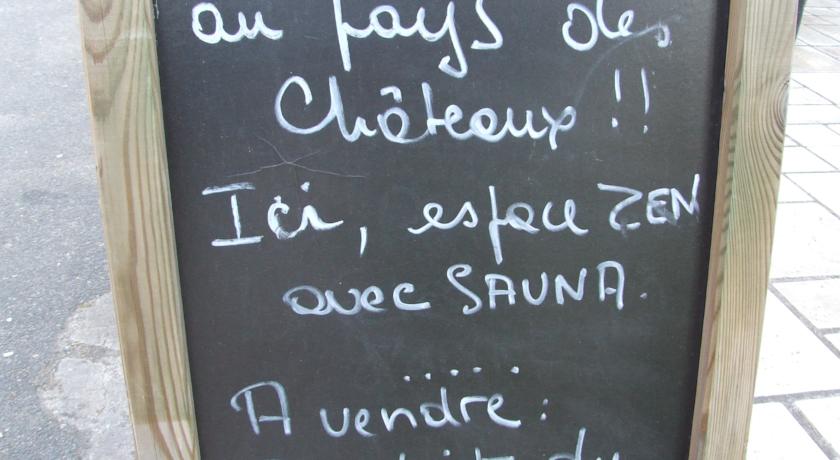 au pays des
Châteaux !!
Ici, espace ZEN
avec SAUNA.
.....
A vendre :
du